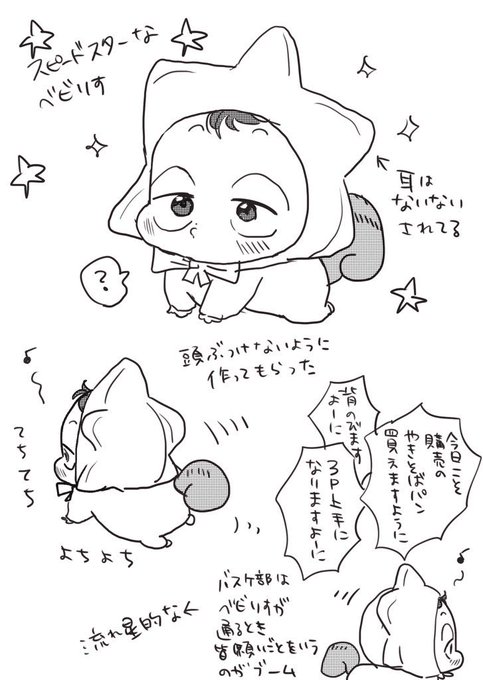 スピードスターな
ベビりす
耳は
ないない
されてる
?
頭ぶつけないように
作ってもらった
てちてち
よちよち
背のびます
よーに
今日こそ
購売の
やきそばパン
買えますように
3P上手に
なりますよーに
バスケ部は
ベビりすが
通るとき
皆願いごとをいう
のがブーム
流れ星的な←